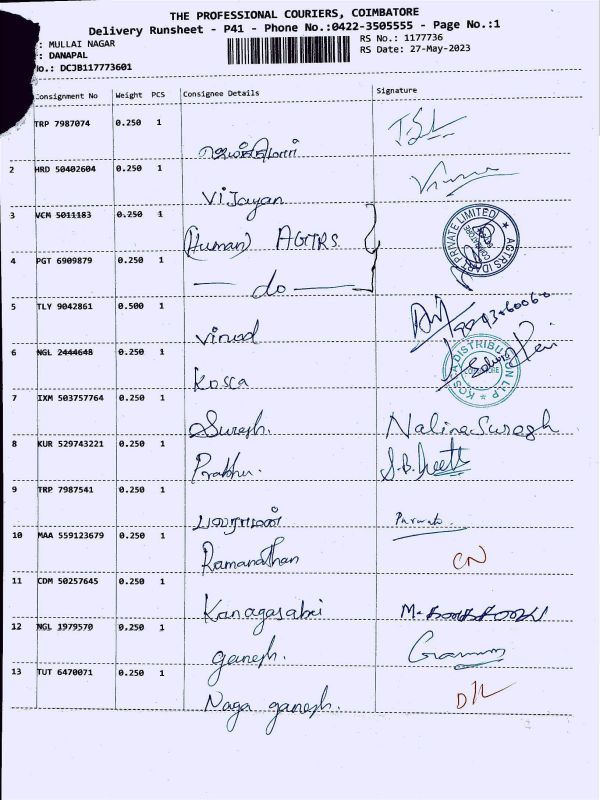 THE PROFESSIONAL COURIERS, COIMBATORE
Delivery Runsheet - P41 - Phone No.:0422-3505555 - Page No.:1
: MULLAI NAGAR RS No.: 1177736
: DANAPAL RS Date: 27-May-2023
No.: DCJB117773601
Consignment No Weight PCS Consignee Details Signature
TRP 7987074 0.250 1
2 HRD 50402604 0.250 1
Vijayan
3 VCM 5011183 0.250 1
(Human) AGTRS
AGTRS IDART PRIVATE LIMITED
4 PGT 6909879 0.250 1
do
5 TLY 9042861 0.500 1
Vinod
6 NGL 2444648 0.250 1
Kosca
KOSCA DISTRIBUTION LLP
7 IXM 503757764 0.250 1
Suresh. Nalina Suresh
8 KUR 529743221 0.250 1
Prabhu.
9 TRP 7987541 0.250 1
10 MAA 559123679 0.250 1
Ramanathan CN
11 CDM 50257645 0.250 1
Kanagasabai
12 NGL 1979570 0.250 1
ganesh.
13 TUT 6470071 0.250 1
Naga ganesh.